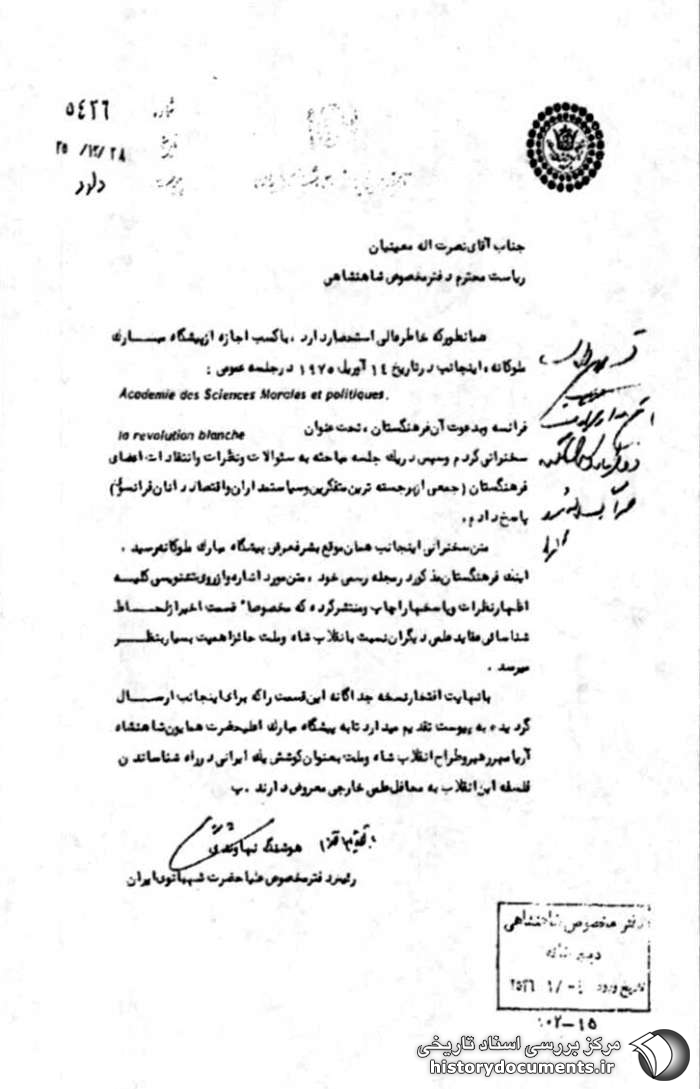 شماره ٥٤٢٦
تاریخ ٢٨ /١٢/ ٢٥
پیوست دارد
جناب آقای نصرت اله معینیان
ریاست محترم دفتر مخصوص شاهنشاهی
همانطور که خاطر عالی استحضار دارد ، با کسب اجازه از پیشگاه مبارک
ملوکانه ، اینجانب در تاریخ ١٤ آوریل ١٩٧٥ در جلسه عمومی :
Academie des Sciences Morales et politiques.
فرانسه و بدعوت آن فرهنگستان ، تحت عنوان la revolution blanche
سخنرانی کردم و سپس در یک جلسه مباحثه به سئوالات و نظرات و انتقادات اعضای
فرهنگستان ( جمعی از برجسته ترین متفکرین و سیاستمداران و اقتصاد دانان فرانسوی )
پاسخ دادم .
متن سخنرانی اینجانب همان موقع بشرفعرض پیشگاه مبارک ملوکانه رسید .
اینک فرهنگستان مذکور در مجله رسمی خود ، متن مورد اشاره و از روی تندنویسی کلیه
اظهار نظرات و پاسخها را چاپ و منتشر کرده که مخصوصا" قسمت اخیر از لحاظ
شناسائی عقاید علمی دیگران نسبت بانقلاب شاه و ملت حائز اهمیت بسیار بنظر
میرسد .
با نهایت افتخار نسخه جداگانه این قسمت را که برای اینجانب ارسال
گردیده به پیوست تقدیم میدارد تا به پیشگاه مبارک اعلیحضرت همایون شاهنشاه
آریامهر رهبر و طراح انقلاب شاه و ملت بعنوان کوشش یک ایرانی در راه شناساندن
فلسفه این انقلاب به محافل علمی خارجی معروض دارند . پ
هوشنگ نهاوندی
رئیس دفتر مخصوص علیاحضرت شهبانوی ایران
دفتر مخصوص شاهنشاهی
دبیرخانه
تاریخ ورود ٤ -/١ ٢٥٣٦
١٠٢-١٥
مرکز بررسی اسناد تاریخی
historydocuments.ir